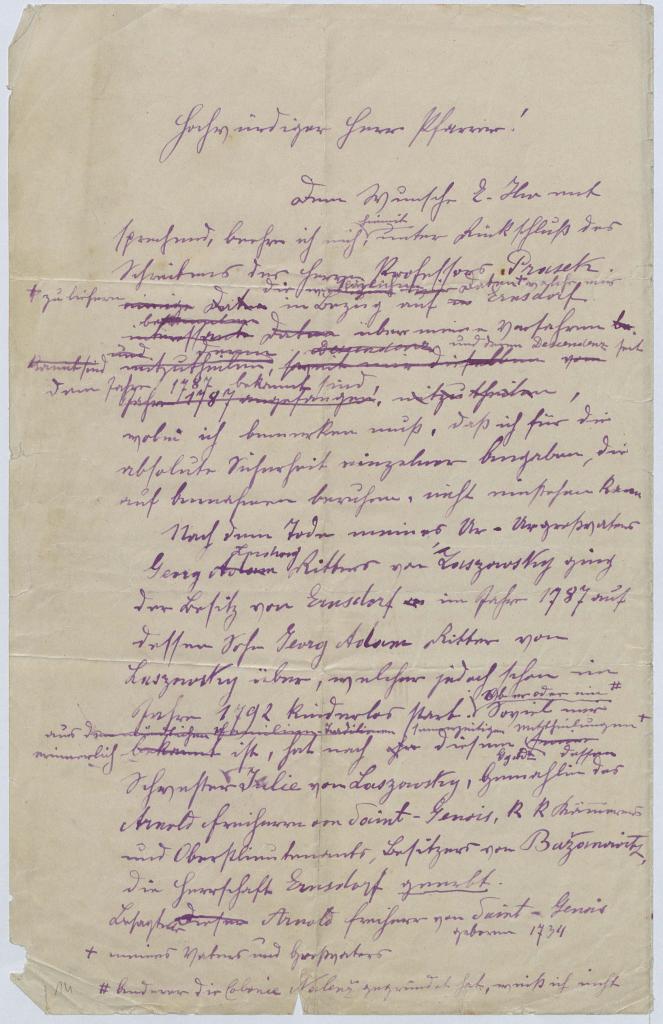 Hochwürdiger Herr Pfarrer!
Dem Wunsche E. Hw ent
hiemit
sprechend, beehre ich mich, unter Rückschluß des
Schreibens des Herrn Professors Prasek
die Daten welche mir
+ zu liefern einige Daten in Bezug auf Ernsdorf
Daten über meine Vorfahren
und deren Descendenz seit
kannt sind mitzutheilen, vom
dem Jahre 1787 bekannt sind,
Jahre 1787 angefangen, mitzutheilen,
wobei ich bemerken muß, daß ich für die
absolute Sicherheit einzelner Angaben, die
auf Annahmen beruhen, nicht einstehen kann
Nach dem Tode meines Ur-Urgroßvaters
Georg Adam Ritters von Laszowsky ging
der Besitz von Ernsdorf im Jahre 1787 auf
dessen Sohn Georg Adam Ritter von
Laszowsky über, welcher jedoch schon im
Ob er oder ein #
Jahre 1792 kinderlos starb. Soviel mir
aus den mündlichen Mittheilungen +
erinnerlich bekannt ist, hat nach diesem dessen
Schwester Julie von Laszowsky, Gemahlin des
Arnold Freiherrn von Saint-Genois, K K Kämmerers
und Oberstlieutenants, Besitzers von Bažanowitz,
die Herrschaft Ernsdorf geerbt.
Besagter Arnold Freiherr von Saint-Genois
geboren 1734
+ meines Vaters und Großvaters
# Anderer die Colonie Nalenž gegründet hat, weiß ich nicht